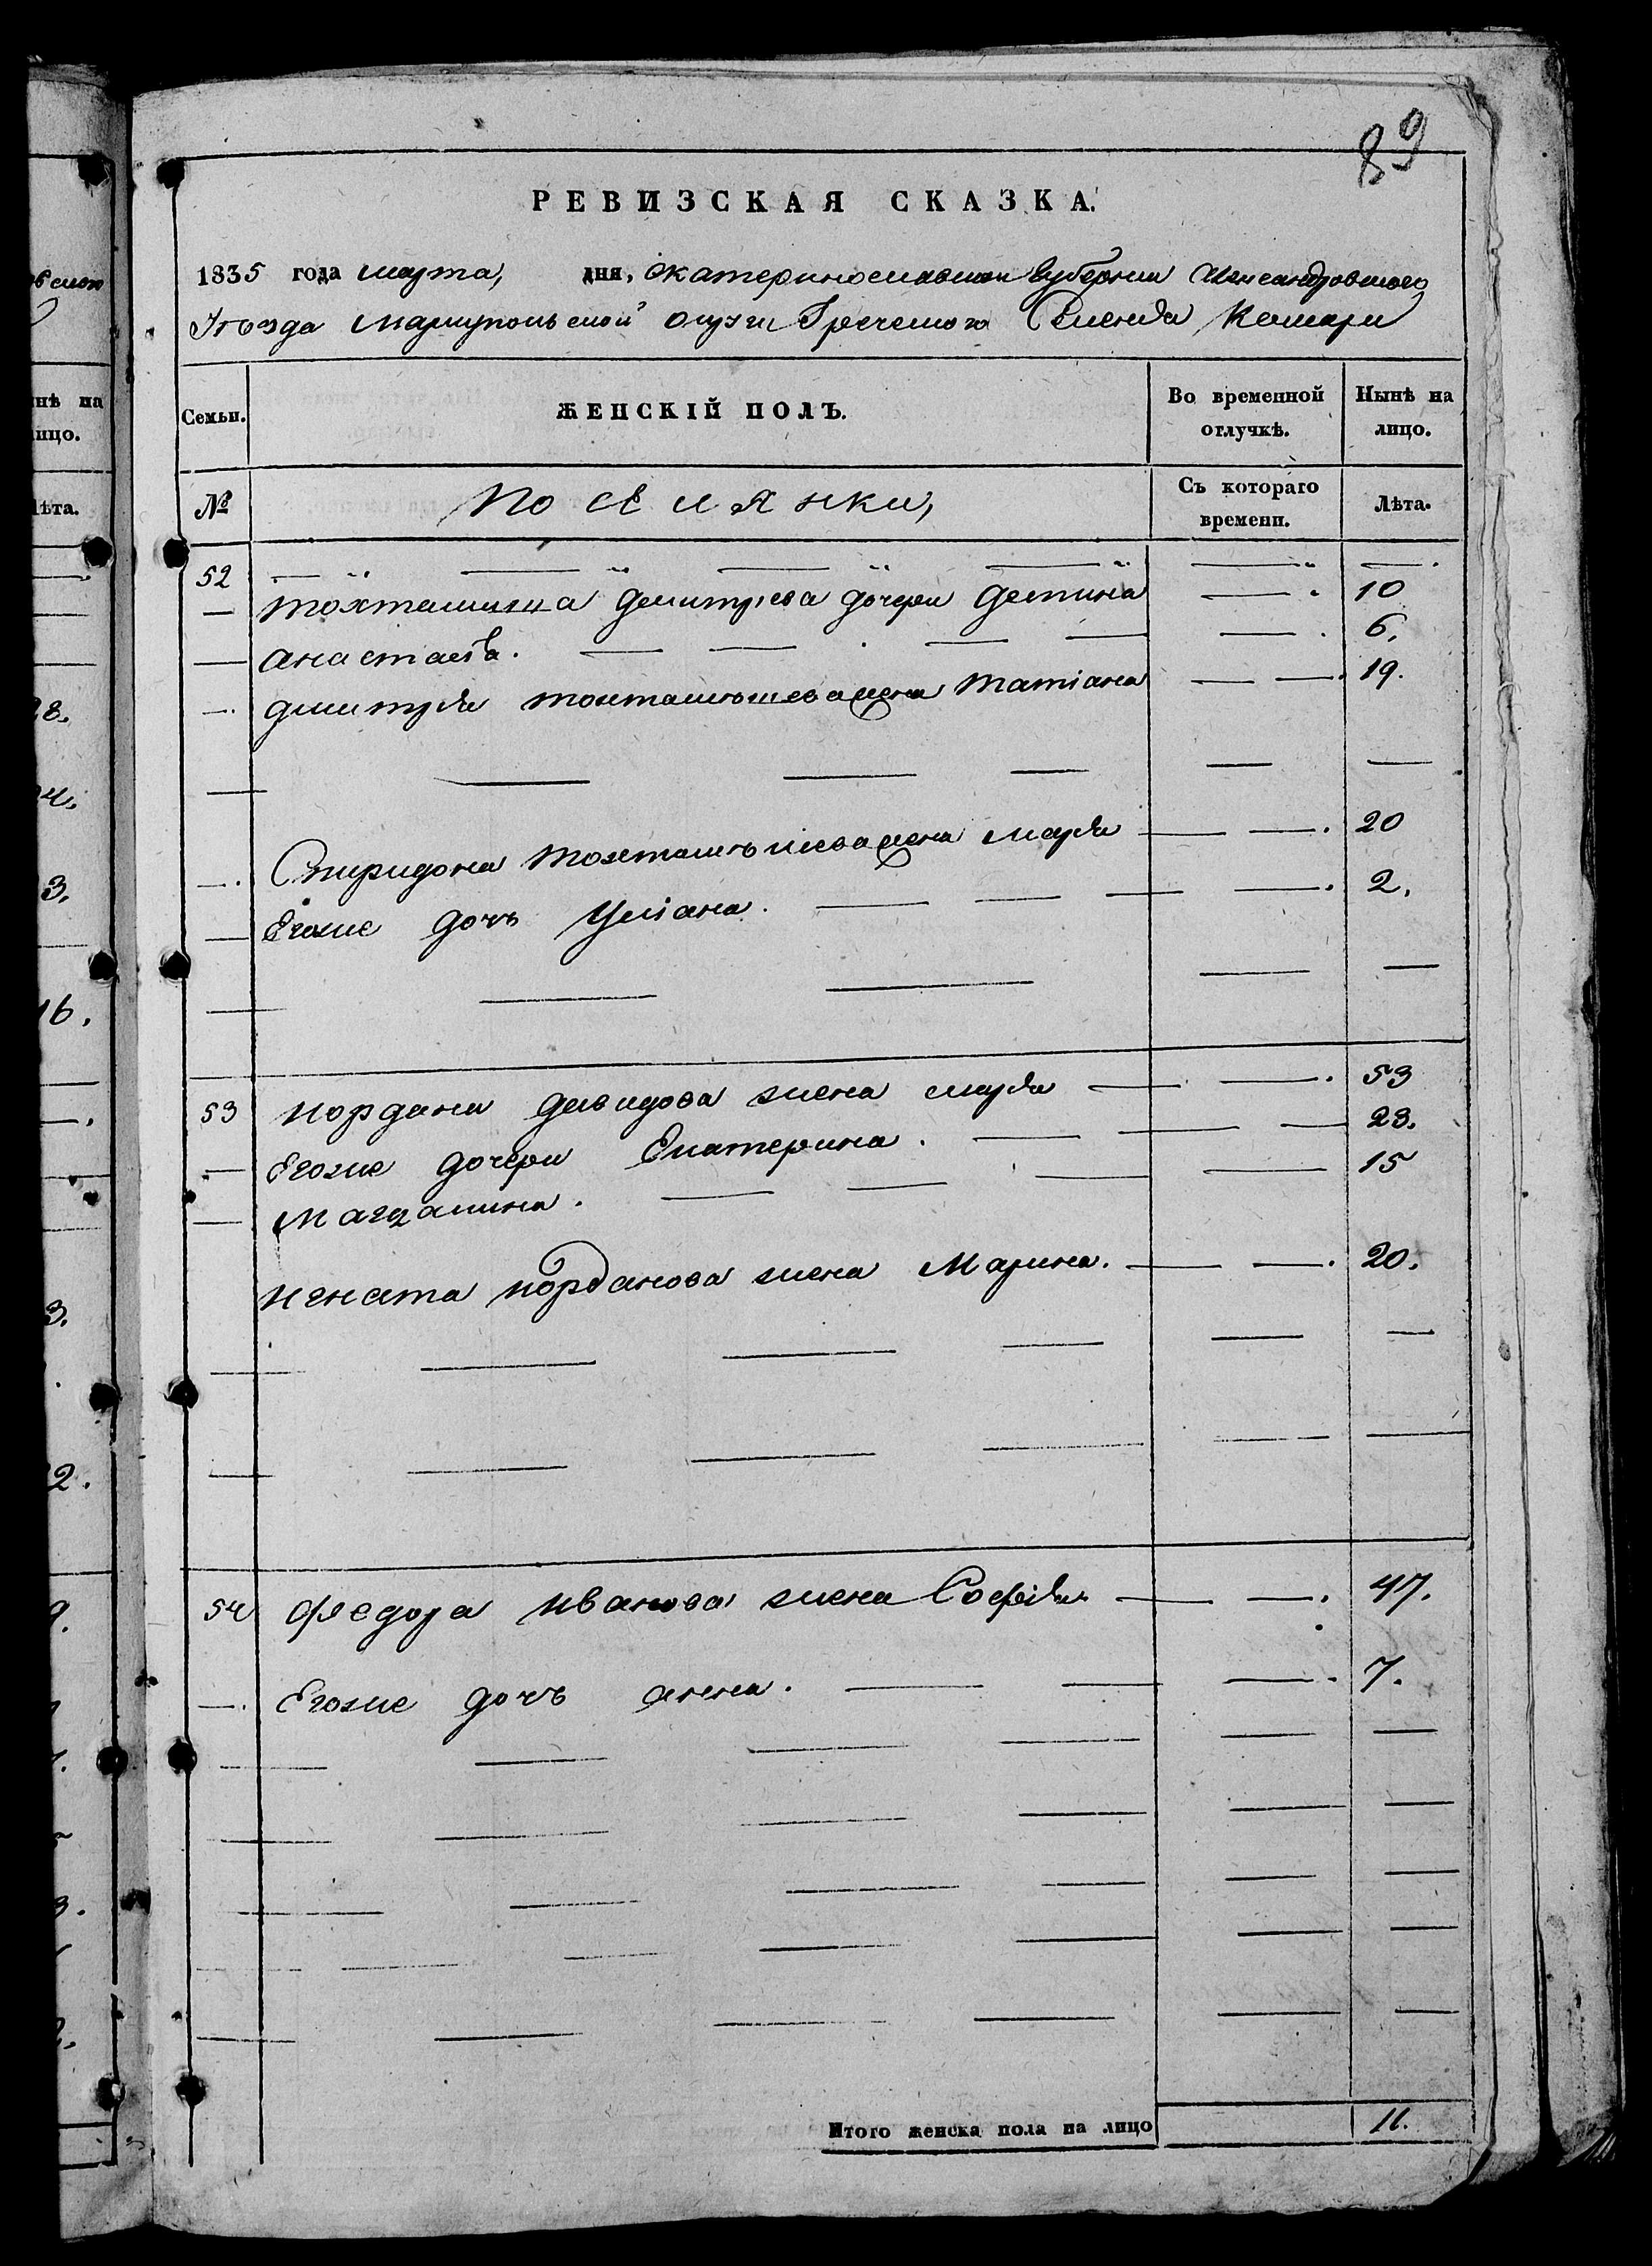 89
РЕВИЗСКАЯ СКАЗКА.
1835 года марта, дня, Екатеринославской губернии Александровского
Уѣзда Мариупольской округи Греческого Селенія Комари
Семьи. ЖЕНСКІЙ ПОЛЪ. Во временной отлучкѣ. Нынѣ на лицо.
№ Поселянки, Съ котораго времени. Лѣта.
52
Дмитрева дочери 10
анастасія. 6.
дмитрія жена татіана 19.
Спиридона жена марія 20
Егоже дочь Уліана. 2.
53 Иордана давидова жена марія 53
Егоже дочери Екатерина. 23.
Магдалина. 15
Игната Иорданова жена Марина. 20.
54 Федора Иванова жена Софія 47.
Егоже дочь анна. 7.
Итого женска пола на лицо 11.
нѣ на
ицо.
лѣта.
28.
3.
16.
3.
2.
9.